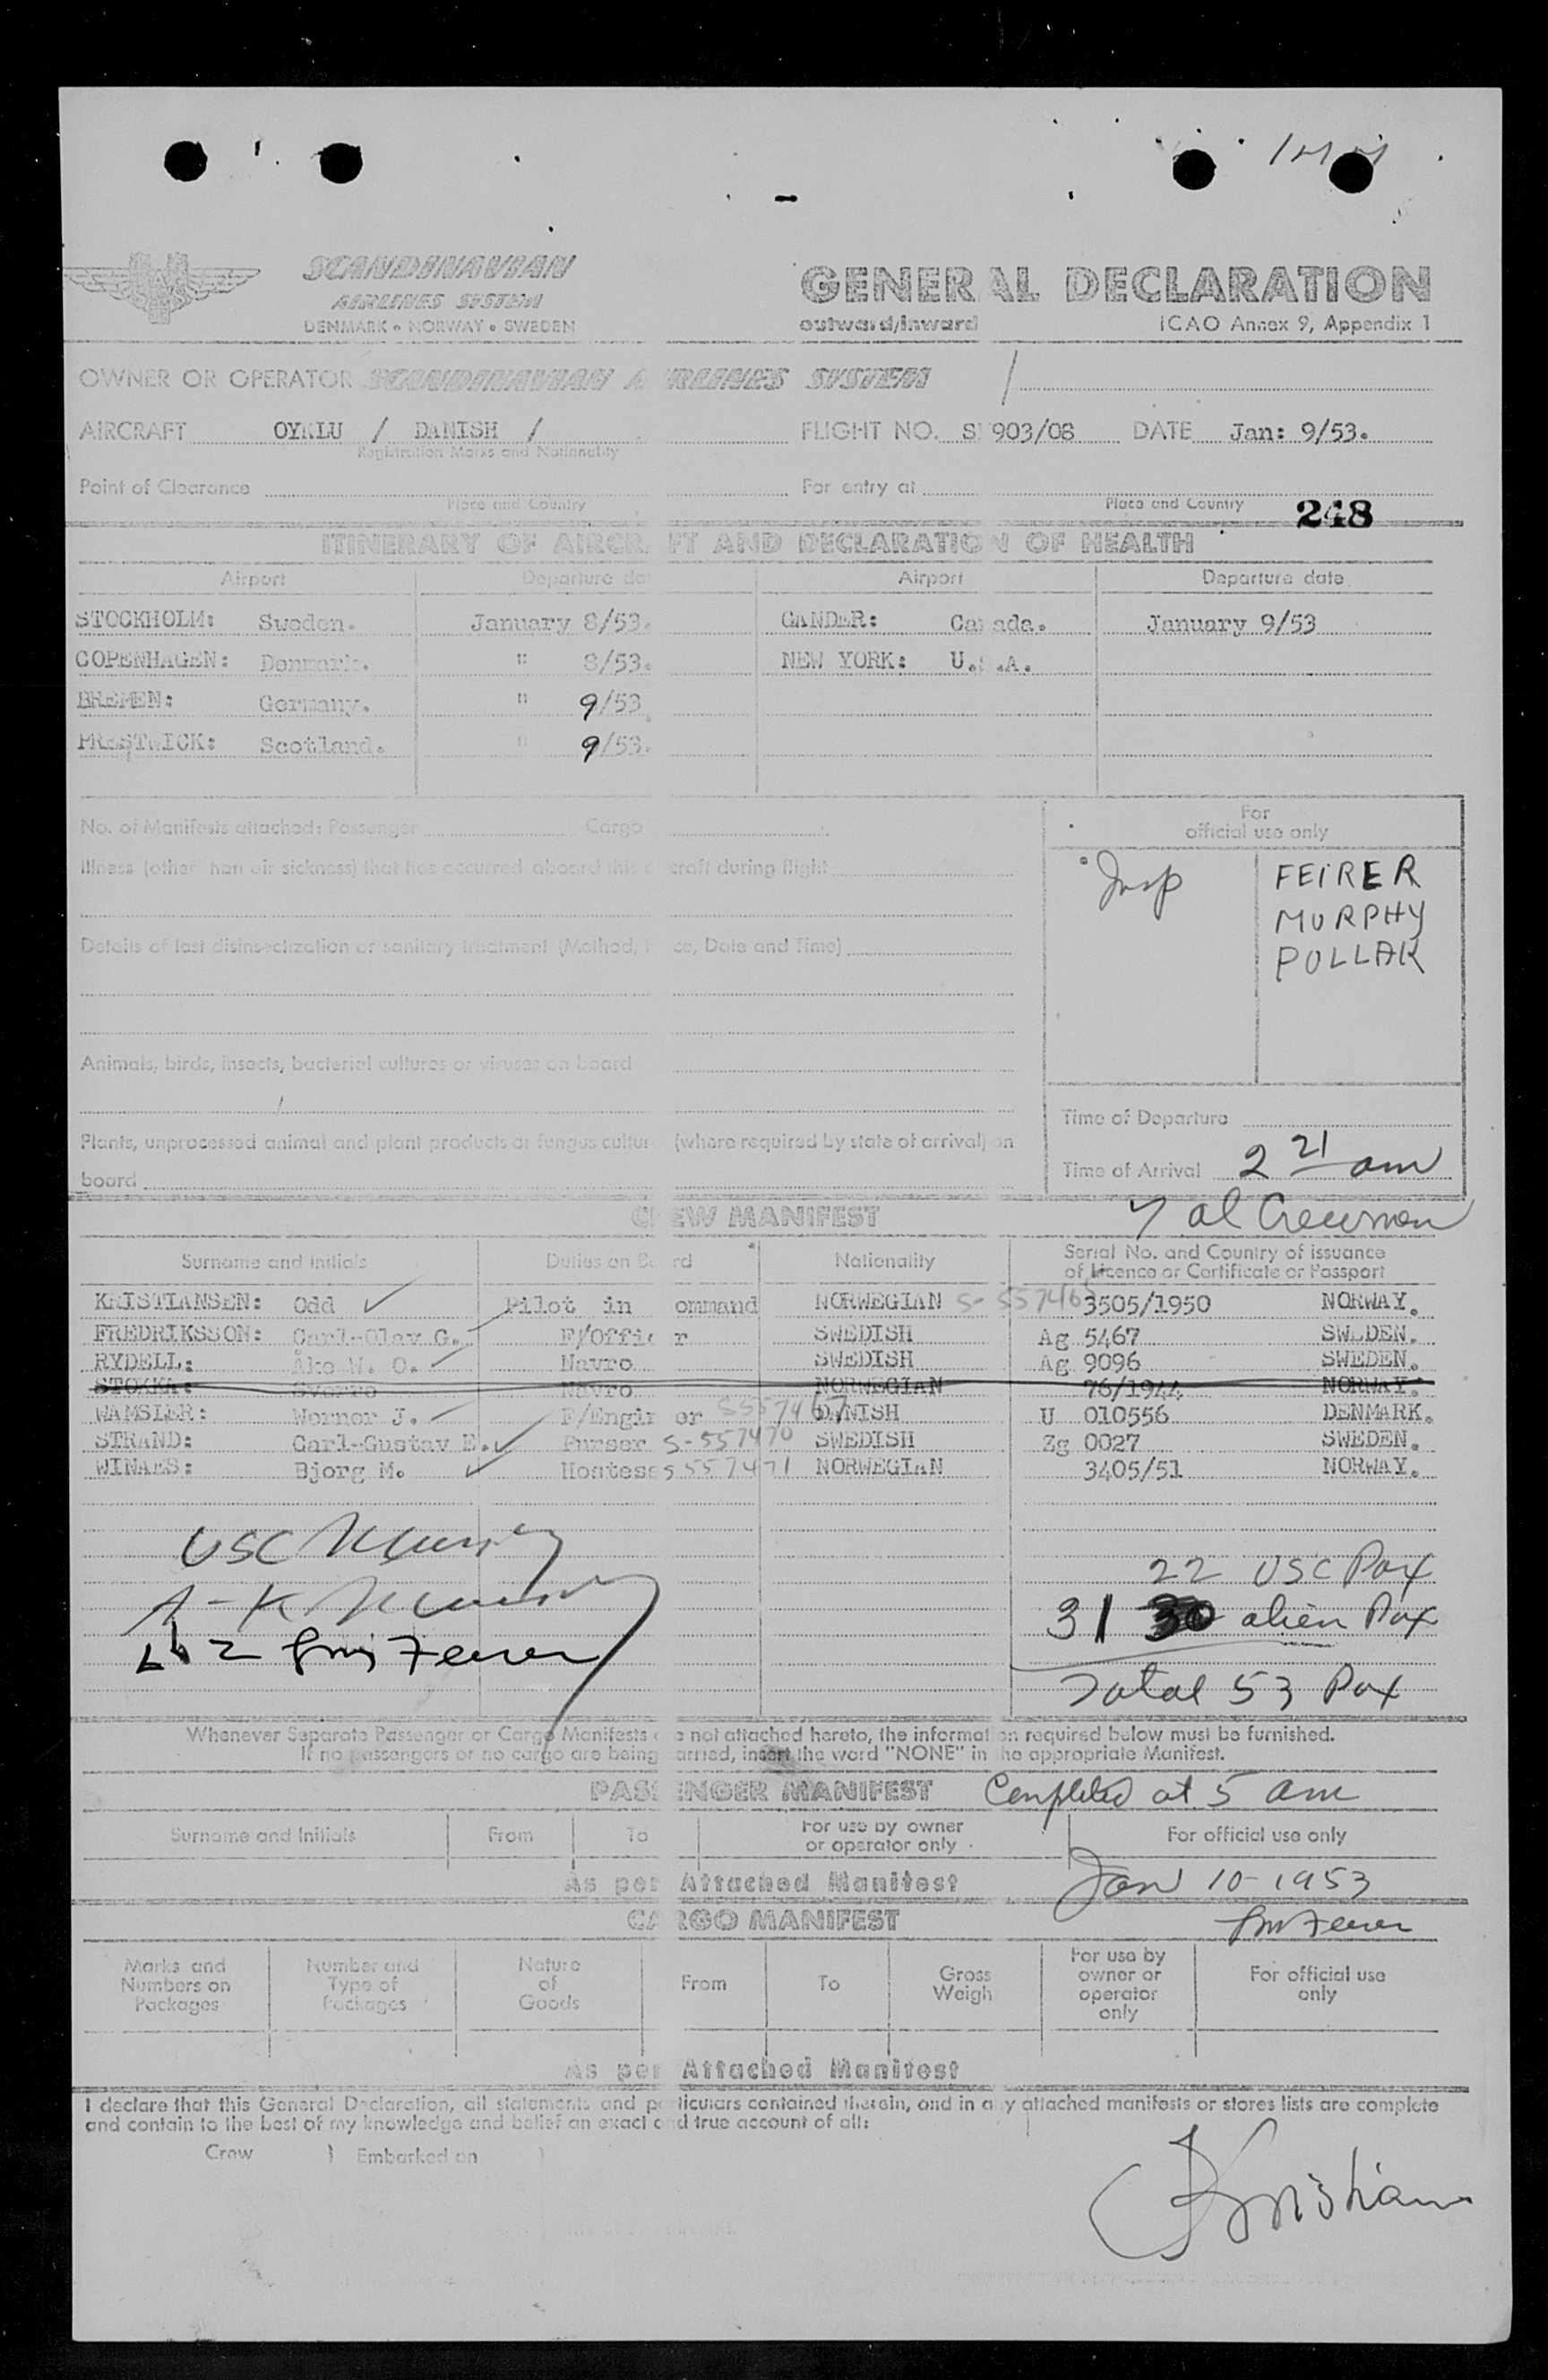 SCANDINAVIAN
AIRLINES SYSTEM
DENMARK • NORWAY • SWEDEN
GENERAL DECLARATION
outward/inward ICAO Annex 9, Appendix 1
OWNER OR OPERATOR SCANDINAVIAN AIRLINES SYSTEM /
AIRCRAFT OYKLU / DANISH / FLIGHT NO. S 903/08 DATE Jan: 9/53.
Registration Marks and Nationality
Point of Clearance For entry at
Place and Country Place and Country 248
ITINERARY OF AIRCRAFT AND DECLARATION OF HEALTH
Airport Departure dat Airport Departure date
STOCKHOLM: Sweden. January 8/53. GANDER: Ca ada. January 9/53
COPENHAGEN: Denmark. " 8/53. NEW YORK: U.S.A.
BREMEN: Germany. " 9/53.
PRESTWICK: Scotland. " 9/53.
No. of Manifests attached: Passenger Cargo
For
official use only
Illness (other than air sickness) that has occurred aboard this aircraft during flight
Insp FEIRER
MURPHY
POLLAK
Details of last disinsectization or sanitary treatment (Method, Place, Date and Time)
Animals, birds, insects, bacterial cultures or viruses on board
/
Plants, unprocessed animal and plant products or fungus cultur (where required by state of arrival) on
board
Time of Departure
Time of Arrival 2 21 am
CREW MANIFEST 7 al Crewmen
Surname and Initials Duties on Board Nationality Serial No. and Country of issuance
of Licence or Certificate or Passport
KRISTIANSEN: Odd ✓ Pilot in ommand NORWEGIAN 3505/1950 NORWAY.
FREDRIKSSON: Carl-Olav G. F/Offic r SWEDISH Ag 5467 SWEDEN.
RYDELL: Åke W. O. Navro SWEDISH Ag 9096 SWEDEN.
STOKKA: Sverre Navro NORWEGIAN 76/1944 NORWAY.
WAMSLER: Werner J. F/Engin er S557467 DANISH U 010556 DENMARK.
STRAND: Carl-Gustav E. ✓ Purser S-557470 SWEDISH Zg 0027 SWEDEN.
WINAES: Bjorg M. ✓ Hostess S 557471 NORWEGIAN 3405/51 NORWAY.
USC
22 USC Pax
31 30 alien Pax
Total 53 Pax
Whenever Separate Passenger or Cargo Manifests are not attached hereto, the information required below must be furnished.
If no passengers or no cargo are being carried, insert the word "NONE" in the appropriate Manifest.
PASSENGER MANIFEST Completed at 5 am
Surname and Initials From To For use by owner
or operator only For official use only
As per Attached Manifest Jan 10-1953
CARGO MANIFEST
Marks and
Numbers on
Packages Number and
Type of
Packages Nature
of
Goods From To Gross
Weigh For use by
owner or
operator
only For official use
only
As per Attached Manifest
I declare that this General Declaration, all statements and particulars contained therein, and in any attached manifests or stores lists are complete
and contain to the best of my knowledge and belief an exact and true account of all:
Crew } Embarked on